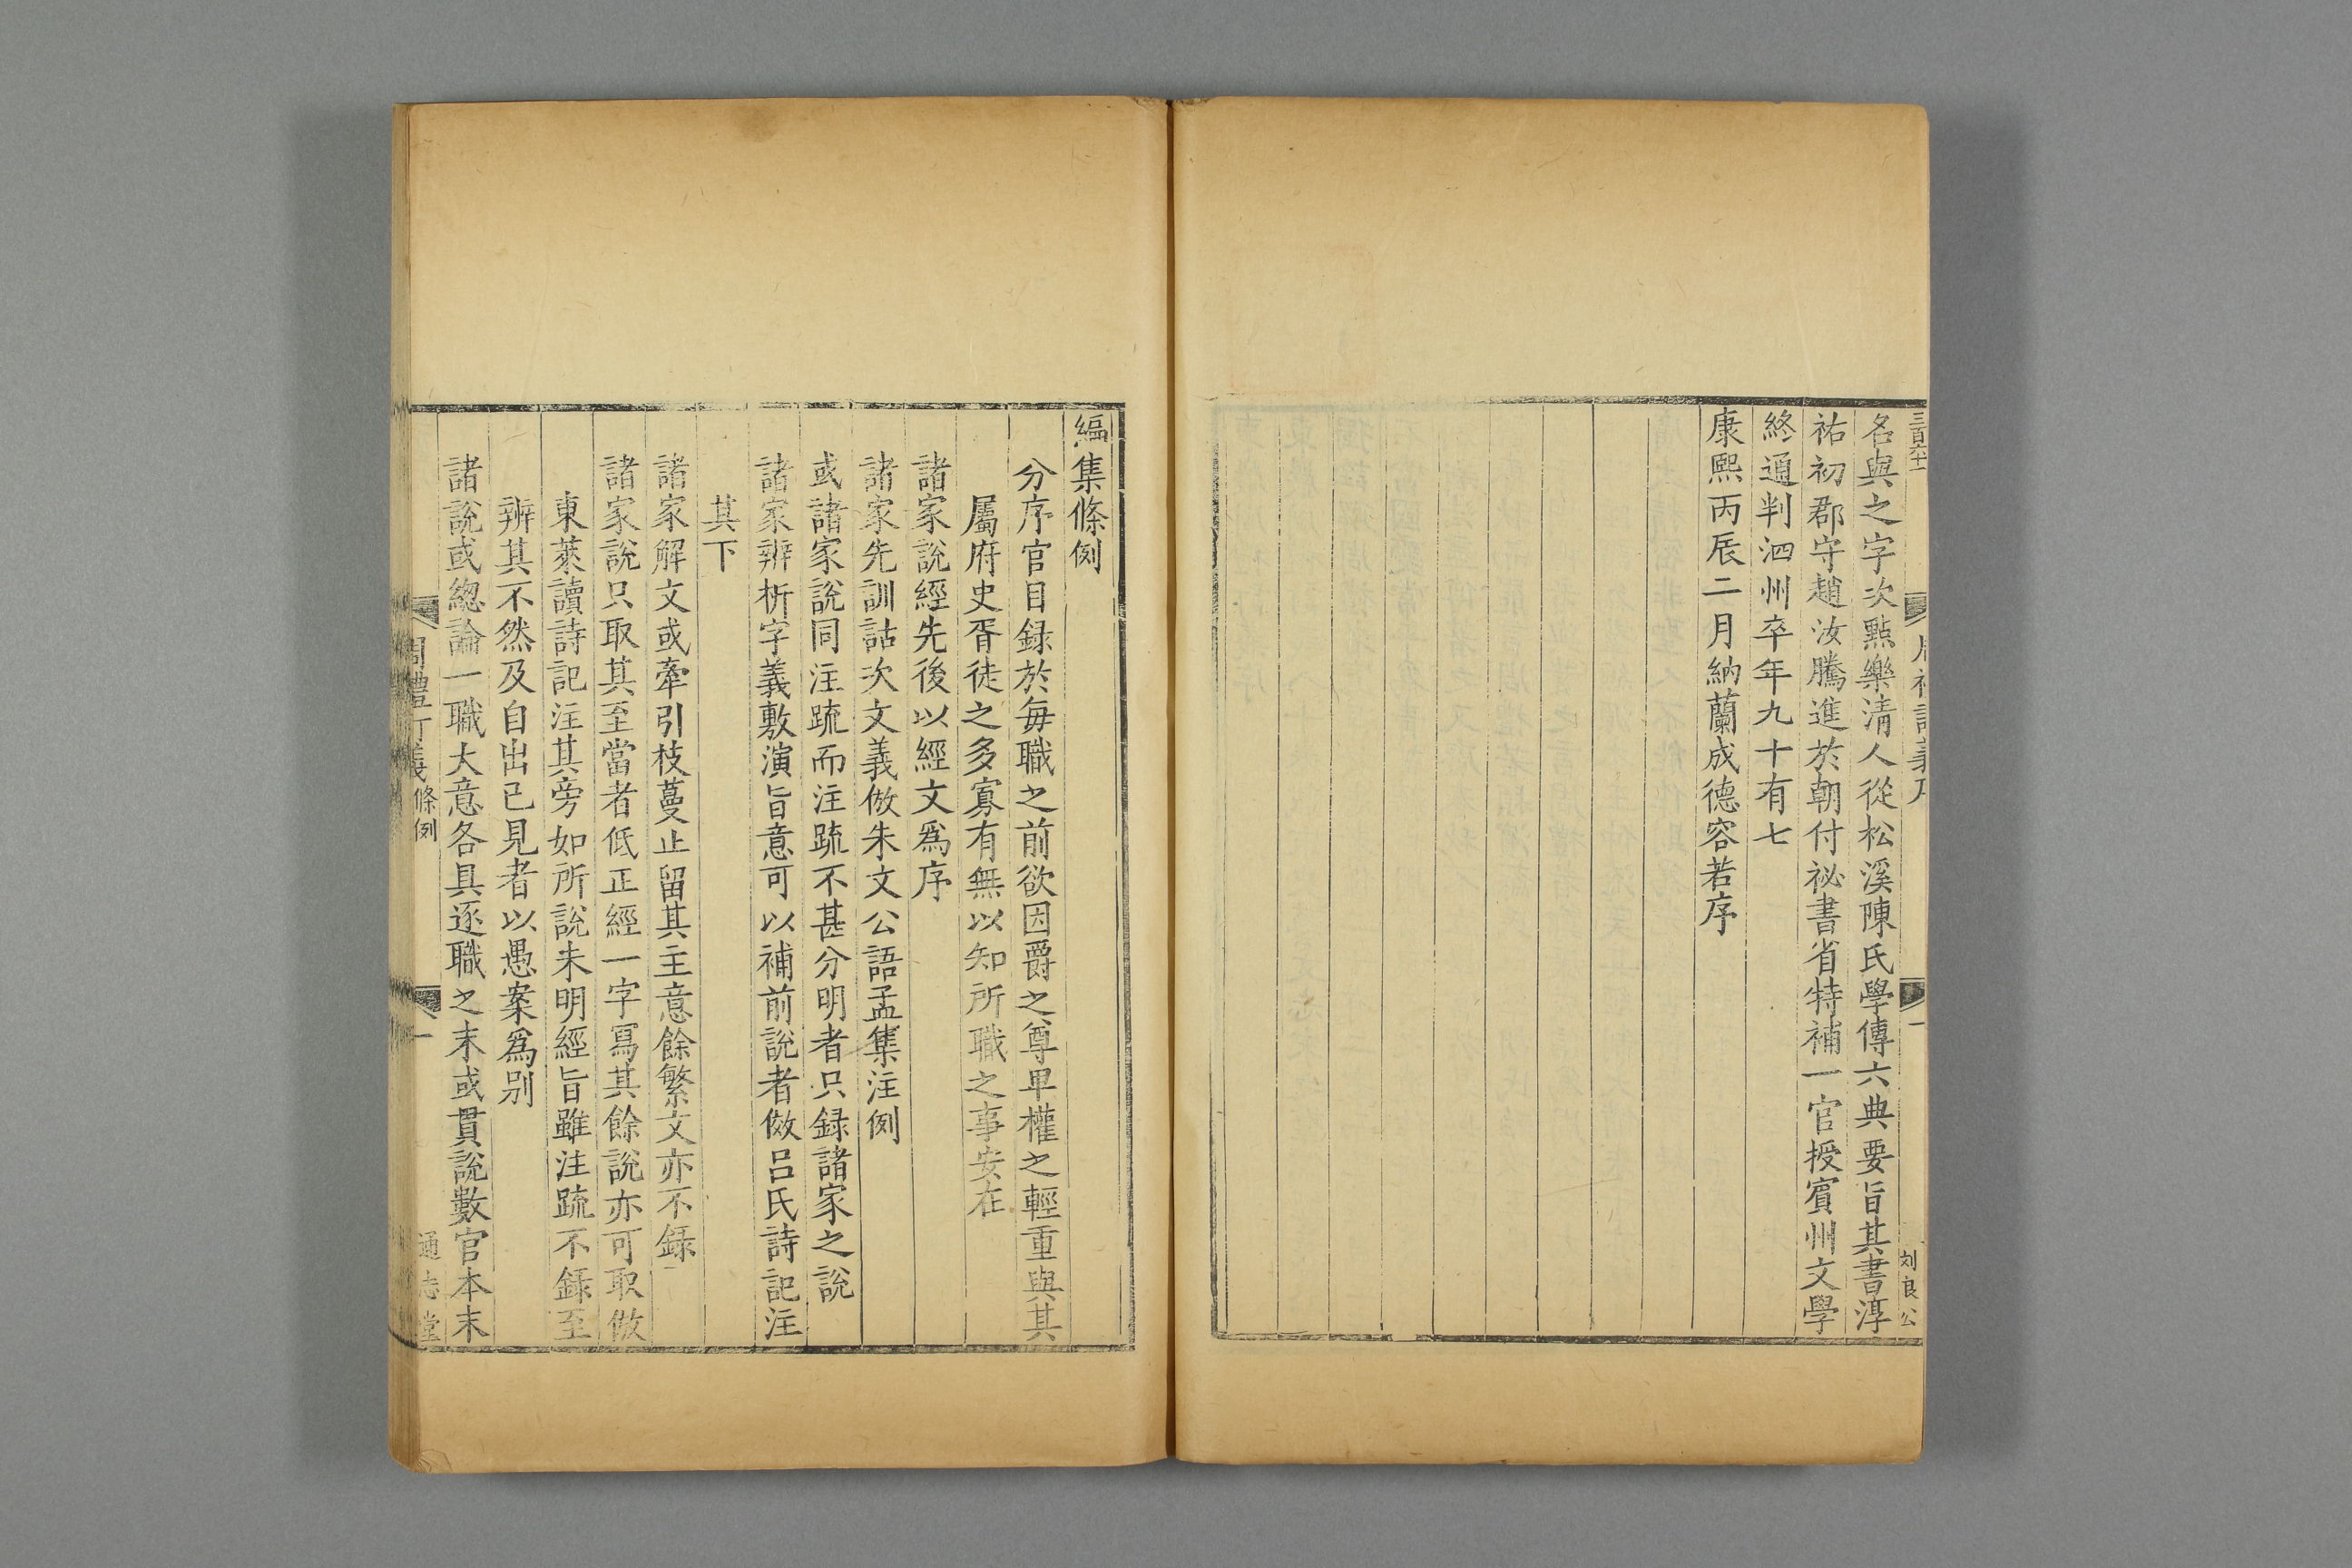 三百六十一
劉良公
名與之字次點樂清人從松溪陳氏學傳六典要旨其書淳
祐初郡守趙汝騰進於朝付祕書省特補一官授賓州文學
終通判泗州卒年九十有七
康熙丙辰二月納蘭成德容若序
編集條例
分序官目録於每職之前欲因爵之尊卑權之輕重與其
屬府史胥徒之多寡有無以知所職之事安在
諸家說經先後以經文爲序
諸家先訓詁次文義倣朱文公語孟集注例
或諸家說同注疏而注疏不甚分明者只録諸家之說
諸家辨析字義敷演旨意可以補前說者倣呂氏詩記注
其下
諸家解文或牽引枝蔓止留其主意餘繁文亦不録
諸家說只取其至當者低正經一字寫其餘說亦可取倣
東萊讀詩記注其旁如所說未明經旨雖注疏不錄至
辨其不然及自出已見者以愚案爲别
諸說或總論一職大意各具逐職之末或貫說數官本末
周禮訂義條例
一
通志堂